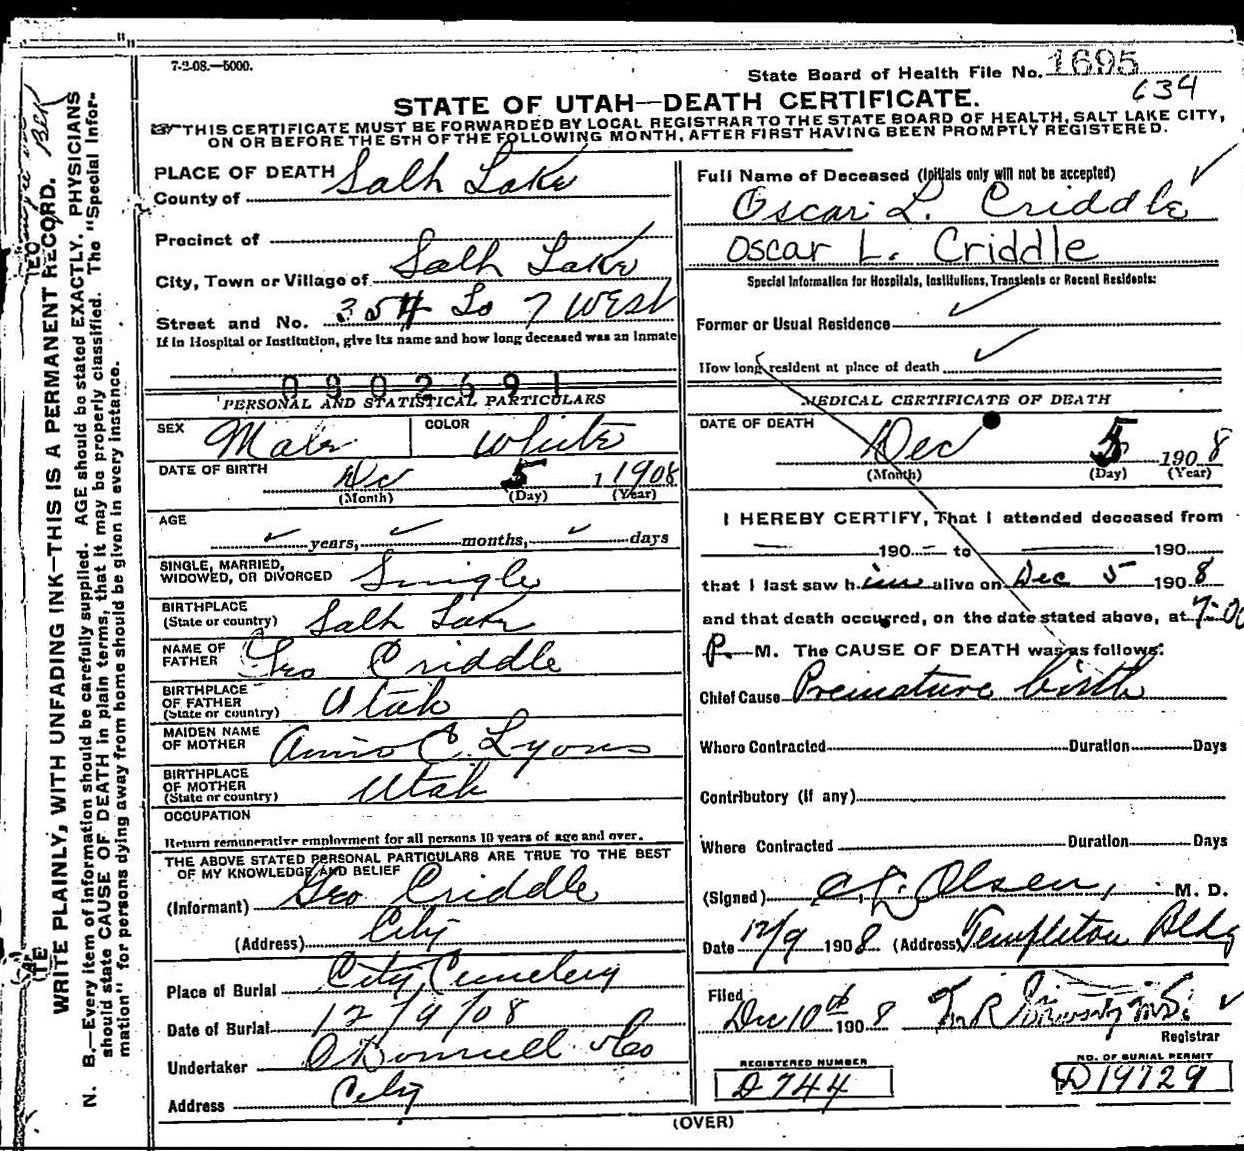 7-2-08.—5000.
State Board of Health File No. 1695
634
STATE OF UTAH—DEATH CERTIFICATE.
THIS CERTIFICATE MUST BE FORWARDED BY LOCAL REGISTRAR TO THE STATE BOARD OF HEALTH, SALT LAKE CITY,
ON OR BEFORE THE 5TH OF THE FOLLOWING MONTH, AFTER FIRST HAVING BEEN PROMPTLY REGISTERED.
WRITE PLAINLY, WITH UNFADING INK—THIS IS A PERMANENT RECORD.
N. B.—Every item of information should be carefully supplied. AGE should be stated EXACTLY. PHYSICIANS
should state CAUSE OF DEATH in plain terms, that it may be properly classified. The "Special Infor-
mation" for persons dying away from home should be given in every instance.
PLACE OF DEATH
County of Salt Lake
Precinct of
City, Town or Village of Salt Lake
Street and No. 354 So 7 West
If in Hospital or Institution, give its name and how long deceased was an Inmate
0302691
PERSONAL AND STATISTICAL PARTICULARS
SEX Male
COLOR White
DATE OF BIRTH Dec 5 1908
(Month) (Day) (Year)
AGE
years, months, days
SINGLE, MARRIED,
WIDOWED, OR DIVORCED Single
BIRTHPLACE
(State or country) Salt Lake
NAME OF
FATHER Geo Criddle
BIRTHPLACE
OF FATHER
(State or country) Utah
MAIDEN NAME
OF MOTHER Annie C. Lyons
BIRTHPLACE
OF MOTHER
(State or country) Utah
OCCUPATION
Return remunerative employment for all persons 10 years of age and over.
THE ABOVE STATED PERSONAL PARTICULARS ARE TRUE TO THE BEST
OF MY KNOWLEDGE AND BELIEF
(Informant) Geo Criddle
(Address) City
Place of Burial City Cemetery
Date of Burial 12/9/08
Undertaker O'Donnell & Co
Address City
Full Name of Deceased (Initials only will not be accepted)
Oscar L. Criddle
Oscar L. Criddle
Special Information for Hospitals, Institutions, Transients or Recent Residents:
Former or Usual Residence
How long resident at place of death
MEDICAL CERTIFICATE OF DEATH
DATE OF DEATH
Dec 5 1908
(Month) (Day) (Year)
I HEREBY CERTIFY, That I attended deceased from
190 to 190
that I last saw him alive on Dec 5 1908
and that death occurred, on the date stated above, at 7-00
P. M. The CAUSE OF DEATH was as follows:
Chief Cause Premature birth
Where Contracted Duration Days
Contributory (If any)
Where Contracted Duration Days
(Signed) Olsen, M. D.
Date 12/9 1908 (Address) Templeton Bldg
Filed
Dec 10th 1908
Registrar
REGISTERED NUMBER
D 744
NO. OF BURIAL PERMIT
D19729
(OVER)